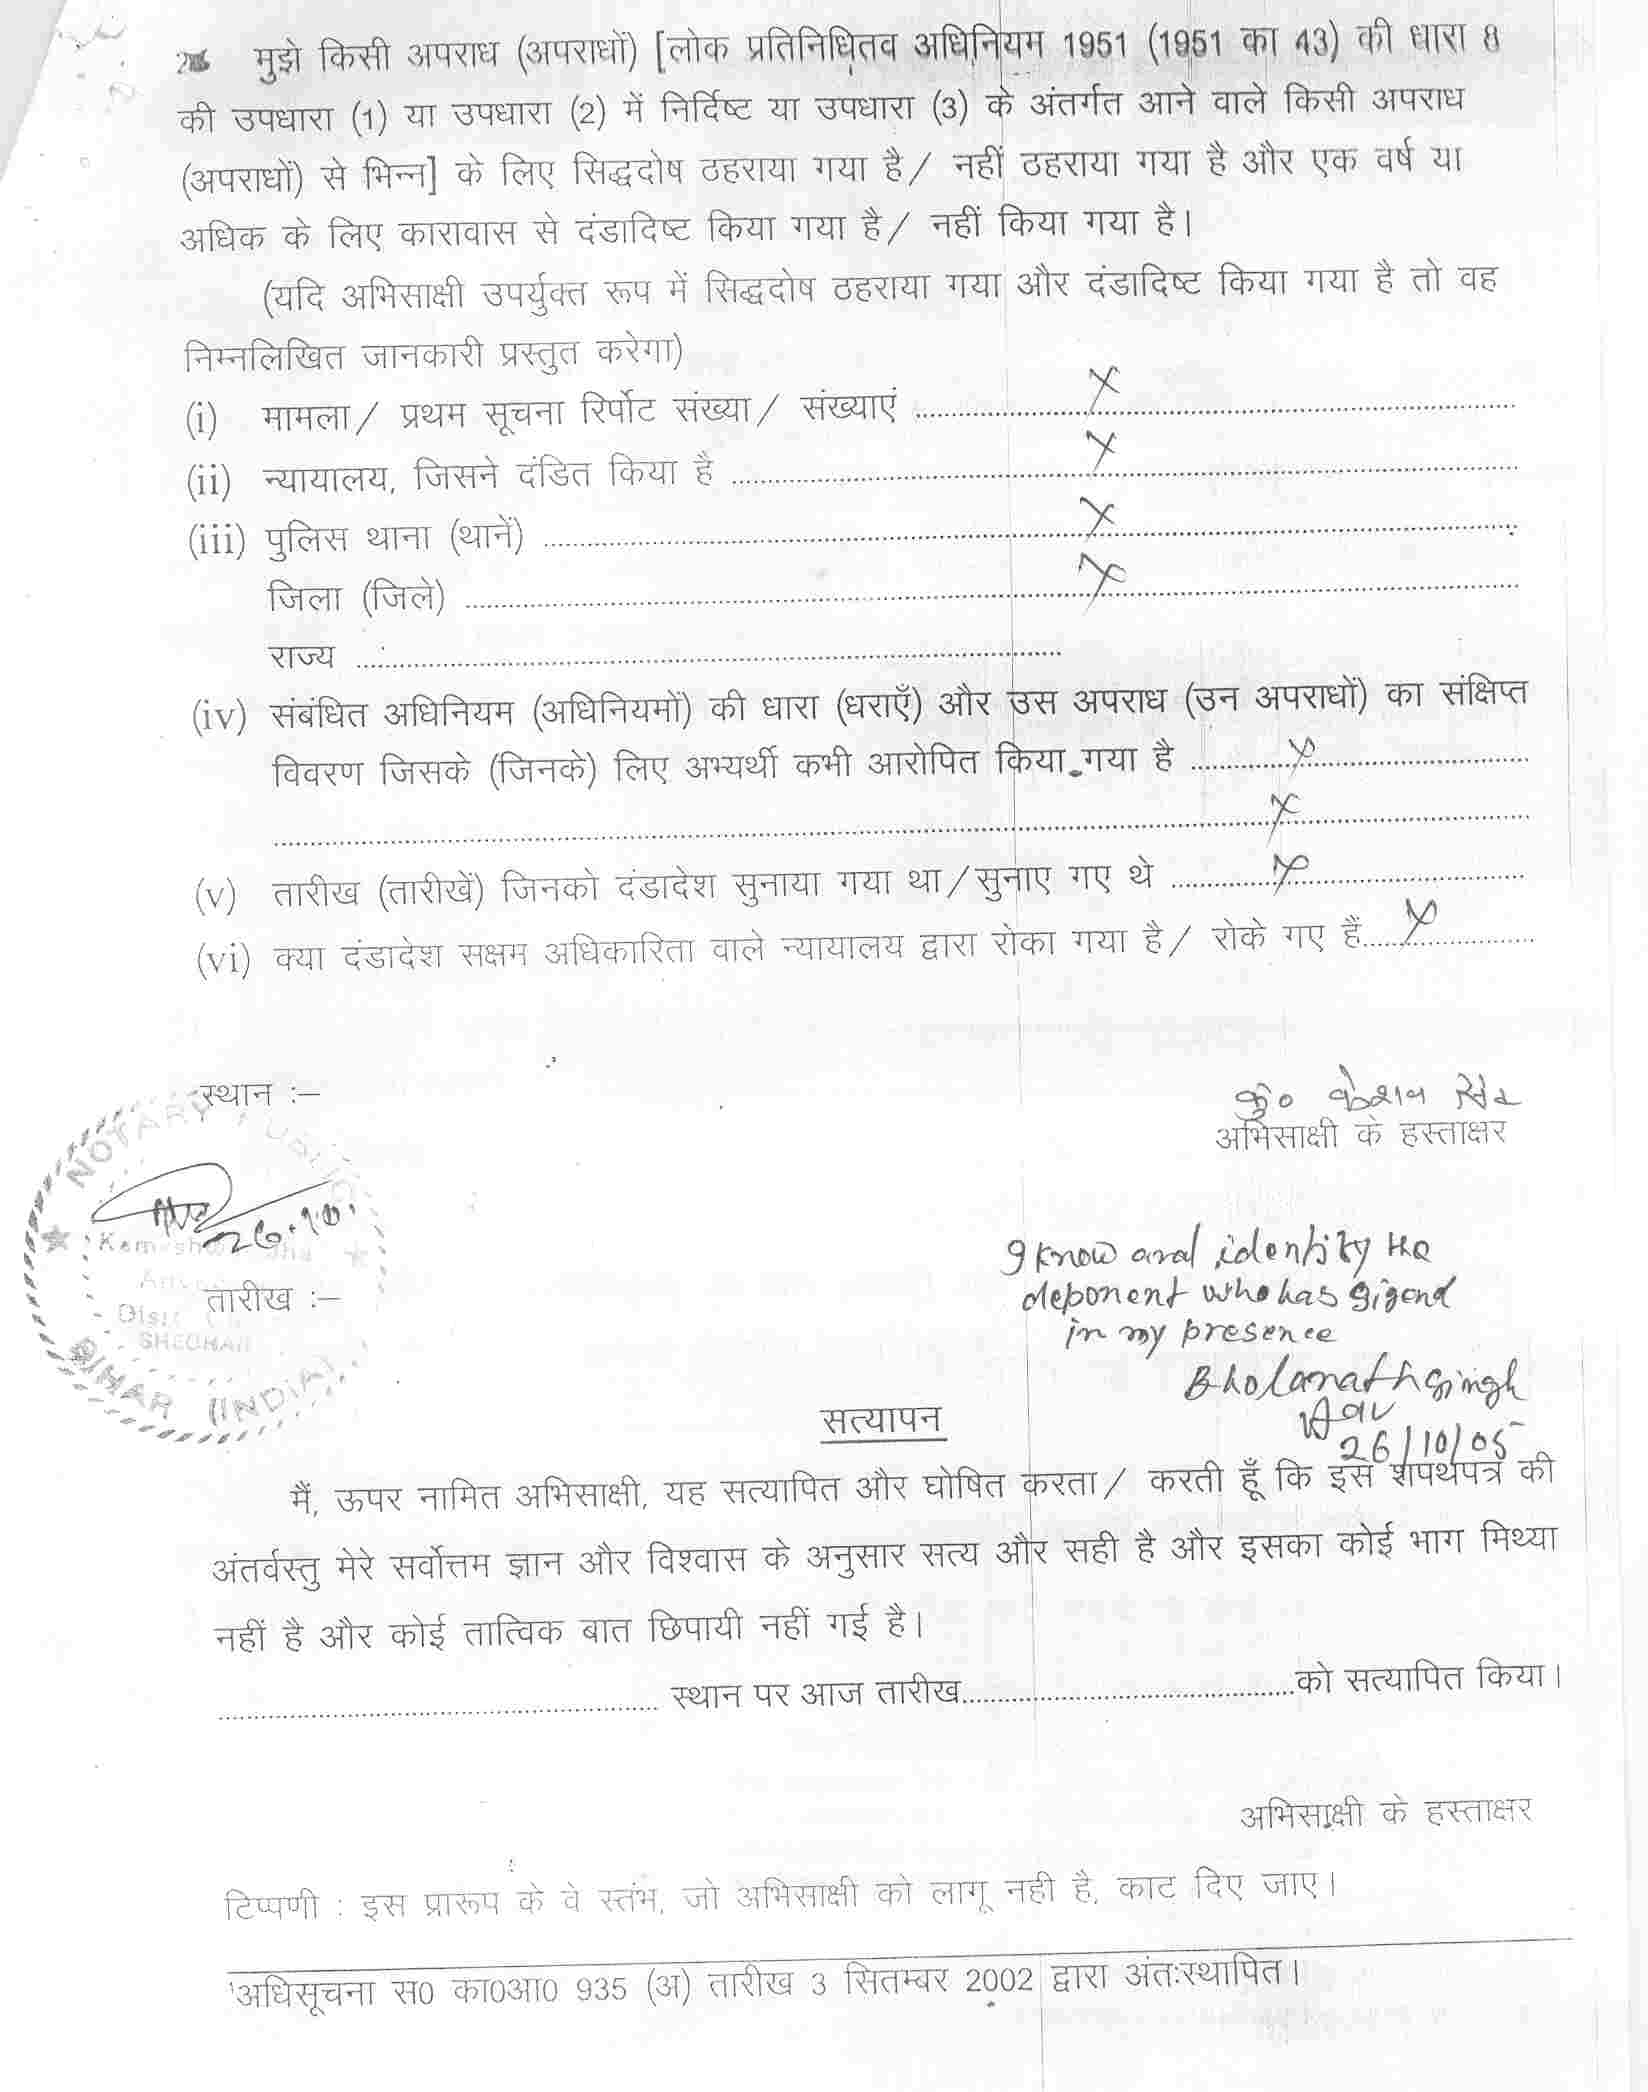 मुझे किसी अपराध (अपराधों) [लोक प्रतिनिधितव अधिनियम 1951 (1951 का 43) की धारा 8
की उपधारा (1) या उपधारा (2) में निर्दिष्ट या उपधारा (3) के अंतर्गत आने वाले किसी अपराध
(अपराधों) से भिन्न] के लिए सिद्धदोष ठहराया गया है/ नहीं ठहराया गया है और एक वर्ष या
अधिक के लिए कारावास से दंडादिष्ट किया गया है/ नहीं किया गया है।
(यदि अभिसाक्षी उपर्युक्त रूप में सिद्धदोष ठहराया गया और दंडादिष्ट किया गया है तो वह
निम्नलिखित जानकारी प्रस्तुत करेगा)
(i) मामला/ प्रथम सूचना रिर्पोट संख्या/ संख्याएं ........ X
(ii) न्यायालय, जिसने दंडित किया है ........ X
(iii) पुलिस थाना (थानें) ........ X
जिला (जिले) ........ X
राज्य ........
(iv) संबंधित अधिनियम (अधिनियमों) की धारा (धराएँ) और उस अपराध (उन अपराधों) का संक्षिप्त
विवरण जिसके (जिनके) लिए अभ्यर्थी कभी आरोपित किया गया है ........ X
........ X
(v) तारीख (तारीखें) जिनको दंडादेश सुनाया गया था/सुनाए गए थे ........ X
(vi) क्या दंडादेश सक्षम अधिकारिता वाले न्यायालय द्वारा रोका गया है/ रोके गए हैं........ X
स्थान :–
कु०
अभिसाक्षी के हस्ताक्षर
NOTARY PUBLIC
26.10.
तारीख :–
SHEOHAR
BIHAR (INDIA)
I know and identity the
deponent who has sigend
in my presence
Bholanath Singh
Adv
26/10/05
सत्यापन
मैं, ऊपर नामित अभिसाक्षी, यह सत्यापित और घोषित करता/ करती हूँ कि इस शपथपत्र की
अंतर्वस्तु मेरे सर्वोत्तम ज्ञान और विश्वास के अनुसार सत्य और सही है और इसका कोई भाग मिथ्या
नहीं है और कोई तात्विक बात छिपायी नहीं गई है।
........ स्थान पर आज तारीख........को सत्यापित किया।
अभिसाक्षी के हस्ताक्षर
टिप्पणी : इस प्रारूप के वे स्तंभ, जो अभिसाक्षी को लागू नही है, काट दिए जाए।
'अधिसूचना स0 का0आ0 935 (अ) तारीख 3 सितम्बर 2002 द्वारा अंतःस्थापित।